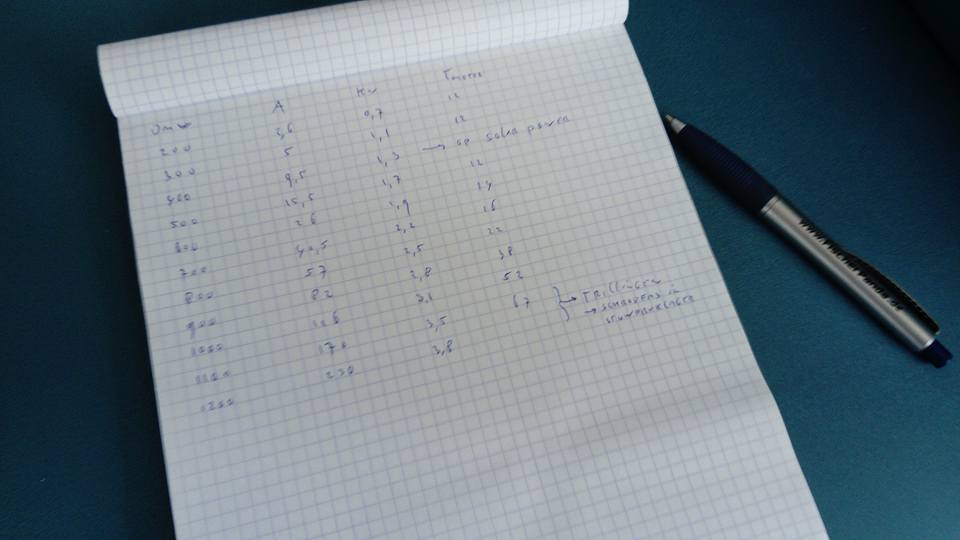 A Kn Tmotor
200 0,7 12
300 5 1,1 12
400 9,5 1,3 → op solar power
500 15,5 1,7 12
600 26 1,9 14
700 40,5 2,2 16
800 57 2,5 22
900 82 2,8 38
1000 3,1 52
1100 170 3,5 67 → trillingen
1200 230 3,8 →